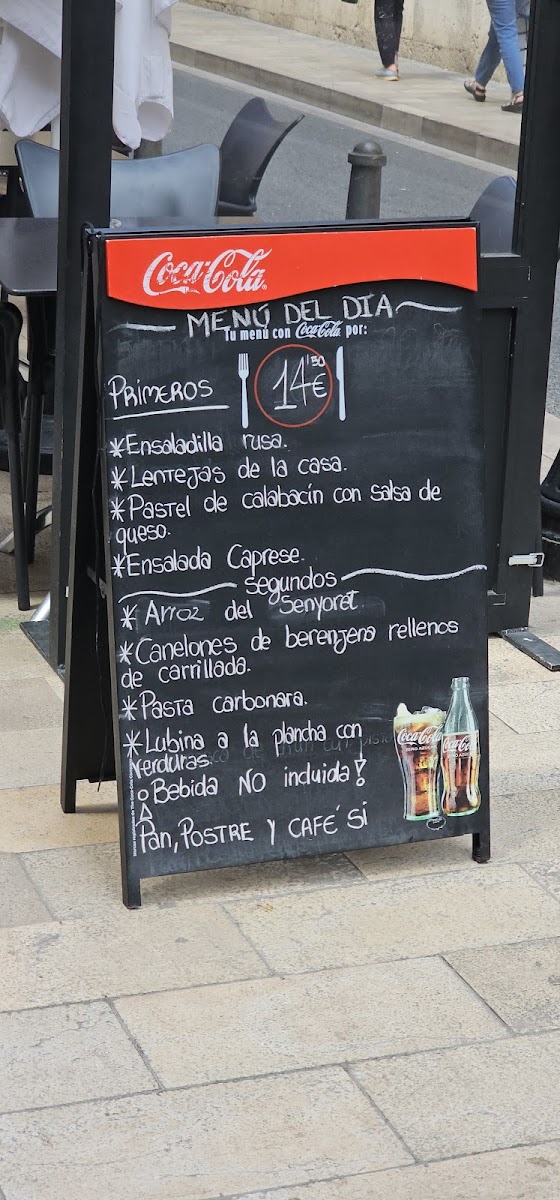 Coca-Cola
MENÚ DEL DIA
Tu menú con Coca-Cola por:
14'50€
PRIMEROS
*Ensaladilla rusa.
*Lentejas de la casa.
*Pastel de calabacín con salsa de
queso.
*Ensalada Caprese.
segundos
*Arroz del Senyoret.
*Canelones de berenjena rellenos
de carrillada.
*Pasta carbonara.
*Lubina a la plancha con
verduras.
Bebida NO incluida!
Pan, POSTRE Y CAFÉ SI
Coca-Cola
Coca-Cola